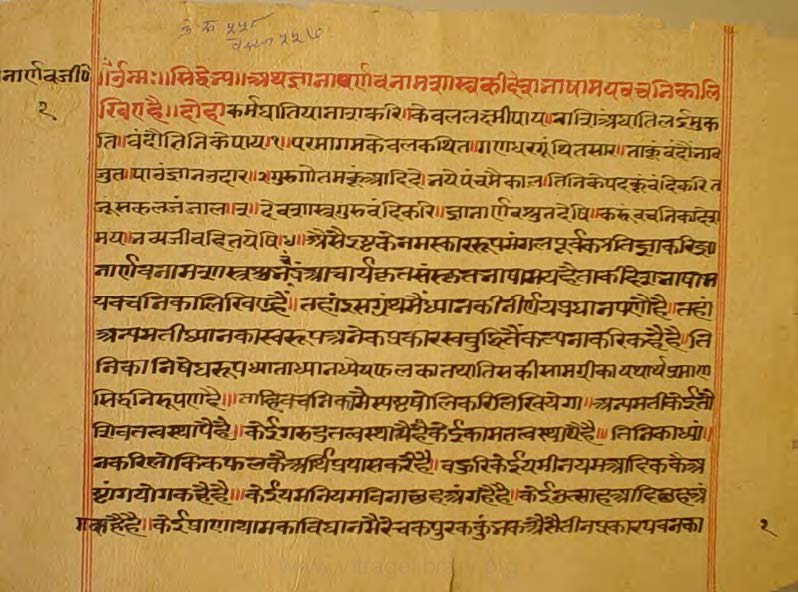 ॥र्उनमः॥सिद्धेभ्यः॥अथज्ञानार्णवनामशास्त्रकीदेशभाषामयवचनिकालि
खिएहै॥दोहा॥कर्मघातियानाशकरि।केवललक्ष्मीपाय।नाशिअघातिलईमुक
ति।वंदौंतिनिकेपाय॥१॥परमागमकेवलकथित।गणधरगूंथितसार।ताकूंवंदौंभाव
जुत।पावंज्ञानउदार॥२॥गुरुगौतमकूंआदिदे।भयेपंचमैकाल।तिनिकेपदकूंवंदिकरि
सकलजंजाल॥३॥देवशास्त्रगुरुवंदिकरि।ज्ञानार्णवश्रुतदेषि।कहूंवचनिकादेश
मय।भव्यजीवहितपेषि॥४॥अैसैंइष्टकेनमस्काररूपमंगलपूर्वकप्रतिज्ञाकरिज्ञा
नार्णवनामशास्त्रशुभचंद्रआचार्यकृतसंस्कृतभाषामयहैताकीदेशभाषाम
यवचनिकालिखिएहै॥तहांइसग्रंथमैंध्यानकीनिर्णयप्रधानपणैहै॥तहां
अन्यमतीध्यानकास्वरूपअनेकप्रकारस्वबुद्धितैंकल्पनाकरिकहैहै॥ति
निकानिषेधरूपध्याताध्यानध्येयफलकातथातिसकीसामग्रीकायथार्थप्रमाण
सिद्धनिरूपणहै॥ताहिवचनिकामैस्पष्टषोलिकरिलिखियेगा॥अन्यमतीकेईतौ
शिवतत्वस्थापैहै॥केईगरुडतत्वस्थापैहैकेईकामतत्वस्थापैहै॥तिनिकाध्या
नकरिलौकिकफलकैअर्थिप्रयासकरैहै॥बहुरिकेईयमनियमआदिककैअ
ष्टांगयोगकहैहै॥केईयमनियमविनाछहअंगहैहै॥केईउत्साहआदिछहअं
गकहैहै॥केईप्राणायामकाविधानमैरेचकपुरककुंभकअैसैतीनप्रकारपवनका
१
१